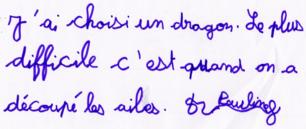 J'ai choisi un dragon. Le plus
difficile c'est quand on a
découpé les ailes.